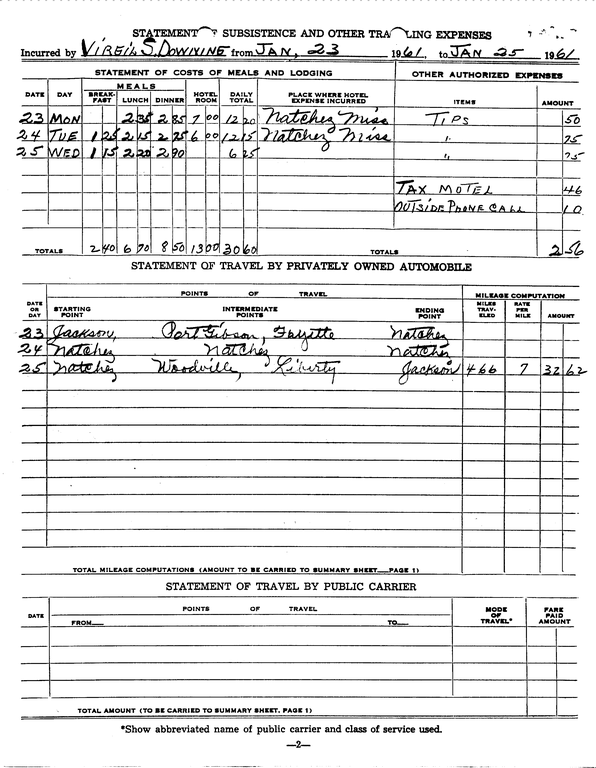 STATEMENT OF SUBSISTENCE AND OTHER TRAVELING EXPENSES
Incurred by VIRGIL S. DOWNING from JAN, 23 1961, to JAN 25 1961
STATEMENT OF COSTS OF MEALS AND LODGING OTHER AUTHORIZED EXPENSES
DATE DAY MEALS BREAK-FAST LUNCH DINNER HOTEL ROOM DAILY TOTAL PLACE WHERE HOTEL EXPENSE INCURRED ITEMS AMOUNT
23 MON 2 35 2 85 7 00 12 20 Natchez Miss TIPS 50
24 TUE 1 25 2 15 2 75 6 00 12 15 Natchez Miss " 75
25 WED 1 15 2 20 2 90 6 25 " 75
TAX MOTEL 46
OUTSIDE PHONE CALL 10
TOTALS 2 40 6 70 8 50 13 00 30 60 TOTALS 2 56
STATEMENT OF TRAVEL BY PRIVATELY OWNED AUTOMOBILE
POINTS OF TRAVEL MILEAGE COMPUTATION
DATE OR DAY STARTING POINT INTERMEDIATE POINTS ENDING POINT MILES TRAV-ELED RATE PER MILE AMOUNT
23 Jackson, Port Gibson, Fayette Natchez
24 Natchez Natchez Natchez
25 Natchez Woodville, Liberty Jackson 466 7 32 62
TOTAL MILEAGE COMPUTATIONS (AMOUNT TO BE CARRIED TO SUMMARY SHEET—PAGE 1)
STATEMENT OF TRAVEL BY PUBLIC CARRIER
DATE POINTS OF TRAVEL MODE OF TRAVEL* FARE PAID AMOUNT
FROM— TO—
TOTAL AMOUNT (TO BE CARRIED TO SUMMARY SHEET. PAGE 1)
*Show abbreviated name of public carrier and class of service used.
—2—